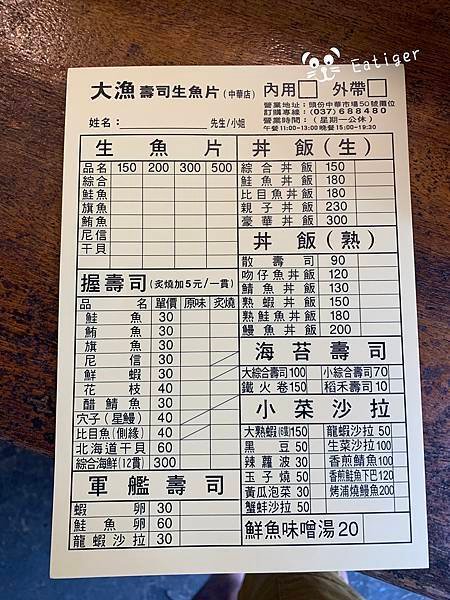 Eatiger
大漁 壽司生魚片 (中華店) 內用□ 外帶□
營業地址：頭份中華市場50號攤位
訂購專線：(037)688480
營業時間：(星期一公休)
午餐11:00-13:00 晚餐15:00-19:30
姓名：__________先生/小姐
生魚片
品名 150 200 300 500
綜合
鮭魚
旗魚
鮪魚
尼信
干貝
握壽司 (炙燒加5元/一貫)
品名 單價 原味 炙燒
鮭魚 30
鮪魚 30
旗魚 30
尼信 30
鮮蝦 30
花枝 40
醋鯖魚 30
穴子(星鰻) 40
比目魚(側緣) 40
北海道干貝 60
綜合海鮮(12貫) 300
軍艦壽司
蝦卵 30
鮭魚卵 60
龍蝦沙拉 30
丼飯(生)
綜合丼飯 150
鮭魚丼飯 180
比目魚丼飯 180
親子丼飯 230
豪華丼飯 300
丼飯(熟)
散壽司 90
吻仔魚丼飯 120
鯖魚丼飯 130
熟蝦丼飯 150
熟鮭魚丼飯 180
鰻魚丼飯 200
海苔壽司
大綜合壽司 100 小綜合壽司 70
鐵火卷 150 稻禾壽司 10
小菜沙拉
大熟蝦(6隻) 150 龍蝦沙拉 50
黑豆 50 生菜沙拉 100
辣蘿波 30 香煎鯖魚 100
玉子燒 50 香煎鮭魚下巴 120
黃瓜泡菜 30 烤浦燒鰻魚 200
蟹蚌沙拉 50
鮮魚味噌湯 20